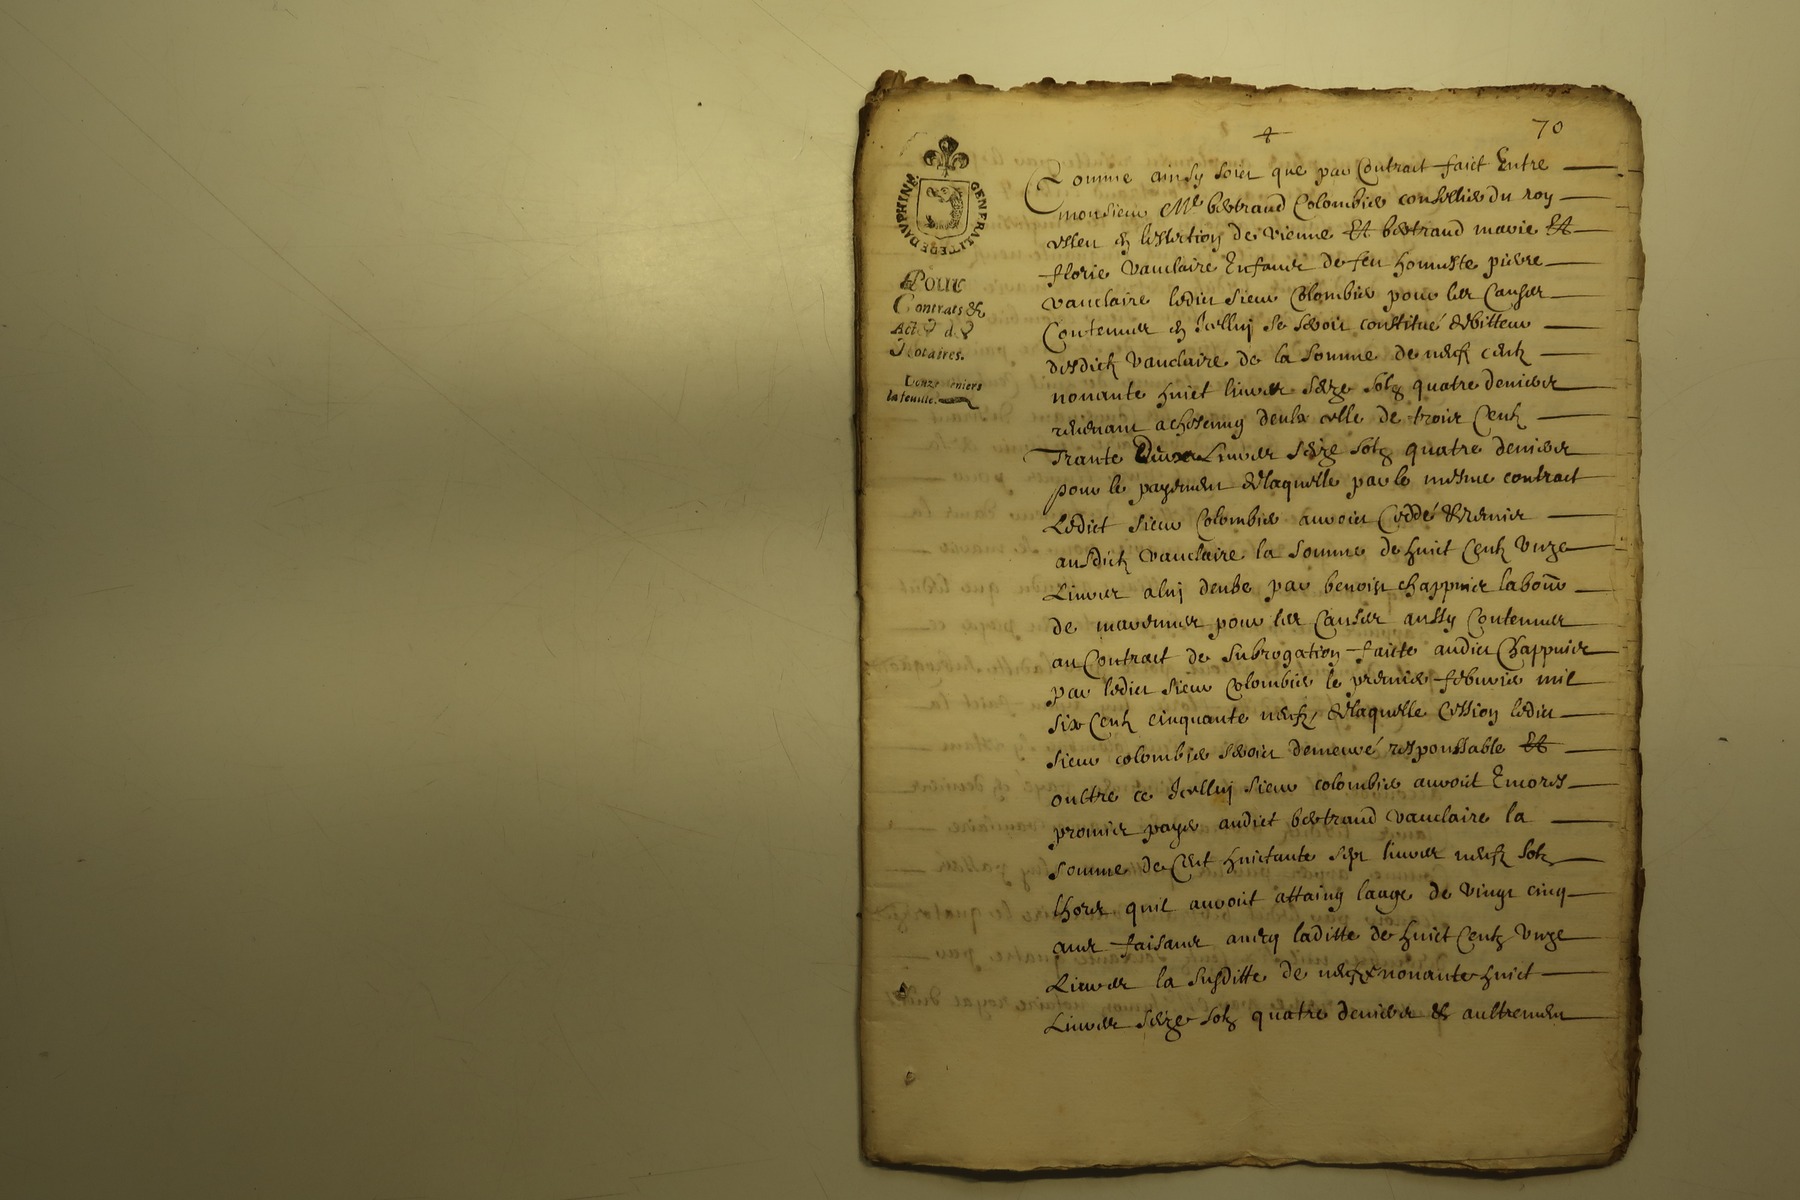 70
GENERALITE DE DAUPHINE.
Pour
Contrats &
Actes de
Notaires.
Douze deniers
la feuille.
Comme ainsy soict que par Contract faict Entre
monsieur Me bertrand Colombier conseiller du roy
esleu en leslection de vienne Et bertrand marie Et
florie vauclaire Enfants de feu honneste pierre
vauclaire ledict sieur Colombier pour les Causes
Contenues en Icelluy se seroit constitué debitteur
desdictz vauclaire de la somme de neufz centz
nonante huict livres seize solz quatre deniers
revenant
Trante Livres seize solz quatre deniers
pour le payement de laquelle par le mesme contract
Ledict sieur Colombier auroict Ceddé & remis
ausdictz vauclaire la somme de huict Centz Unze
Livres a luy deube par benoist chappuis
de pour les Causes aussy Contenues
au Contract de subrogation faicte audict Chappuis
par ledict sieur Colombier le premier febvrier mil
six Centz cinquante neufz, de laquelle Cession ledict
sieur colombier seroict demeuré responssable Et
oultre ce Icelluy sieur colombier auroict Encores
promis payer audict bertrand vauclaire la
somme de Cent huictante sept livres neufz solz
lhors quil auroict attaing laage de vingt cinq
ans faisant avecq laditte de huict Centz Unze
Livres la susditte de neufz nonante huict
Livres seize solz quatre deniers & aultrement